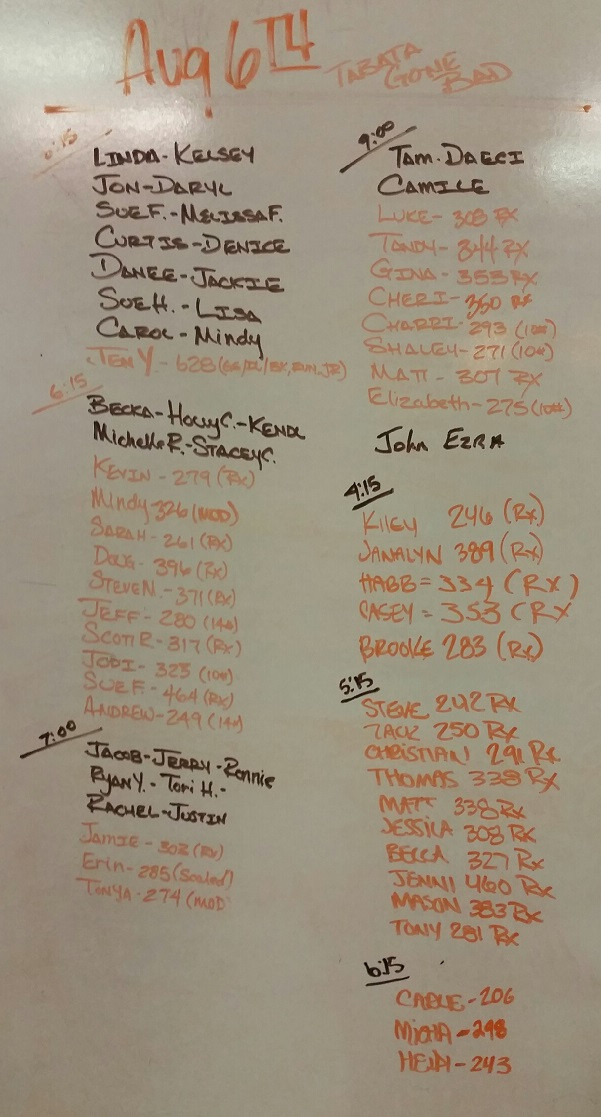 Aug 6TH
TABATA
GONE
BAD
5:15
LINDA-KELSEY
JON-DARYL
SUE F.-MELISSA F.
CURTIS-DENICE
DANEE-JACKIE
SUE H.-LISA
CAROL-Mindy
JEN Y.-628
6:15
BECKA-Holly C.-KENDL
Michelle R.-STACEY C.
KEVIN-279 (Rx)
Mindy 326 (MOD)
SARAH-261 (RX)
DOUG-396 (RX)
STEVE N.-371 (RX)
JEFF-280 (14#)
SCOTT R-317 (Rx)
JODI-323 (10#)
SUE F.-464 (RX)
ANDREW-249 (14#)
7:00
JACOB-JERRY-Ronnie
RYAN Y.-Tori H.-
RACHEL-JUSTIN
Jamie-302 (Rx)
Erin-285 (Scaled)
TONYA-274 (MOD)
9:00
TAM-DAECI
CAMILE
LUKE-308 RX
TANDY-344 RX
GINA-353 RX
CHERI-350 RX
CHARRI-293 (10#)
SHALEY-271 (10#)
MATT-307 RX
Elizabeth-275 (10#)
John EZRA
4:15
KILEY 246 (Rx)
JANALYN 389 (Rx)
HABB = 334 (RX)
CASEY = 353 (RX
BROOKE 283 (Rx)
5:15
STEVE 242 RX
ZACK 250 Rx
CHRISTIAN 291 Rx
THOMAS 338 Rx
MATT 338 Rx
JESSICA 308 Rx
BECCA 327 Rx
JENNI 460 Rx
MASON 383 Rx
TONY 281 Rx
6:15
CABLE-206
MICHA-248
HEIDI-243